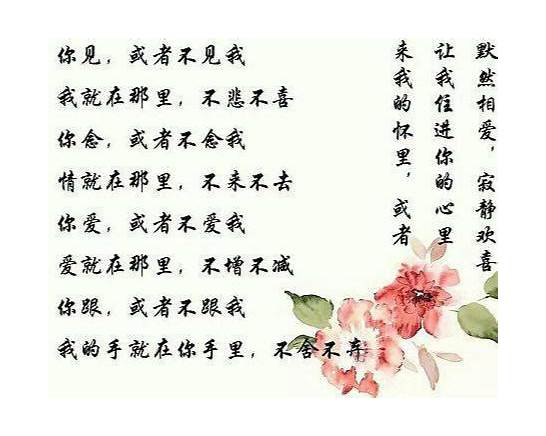 你见，或者不见我
我就在那里，不悲不喜
你念，或者不念我
情就在那里，不来不去
你爱，或者不爱我
爱就在那里，不增不减
你跟，或者不跟我
我的手就在你手里，不舍不弃
来我的怀里，或者
让我住进你的心里
默然相爱，寂静欢喜